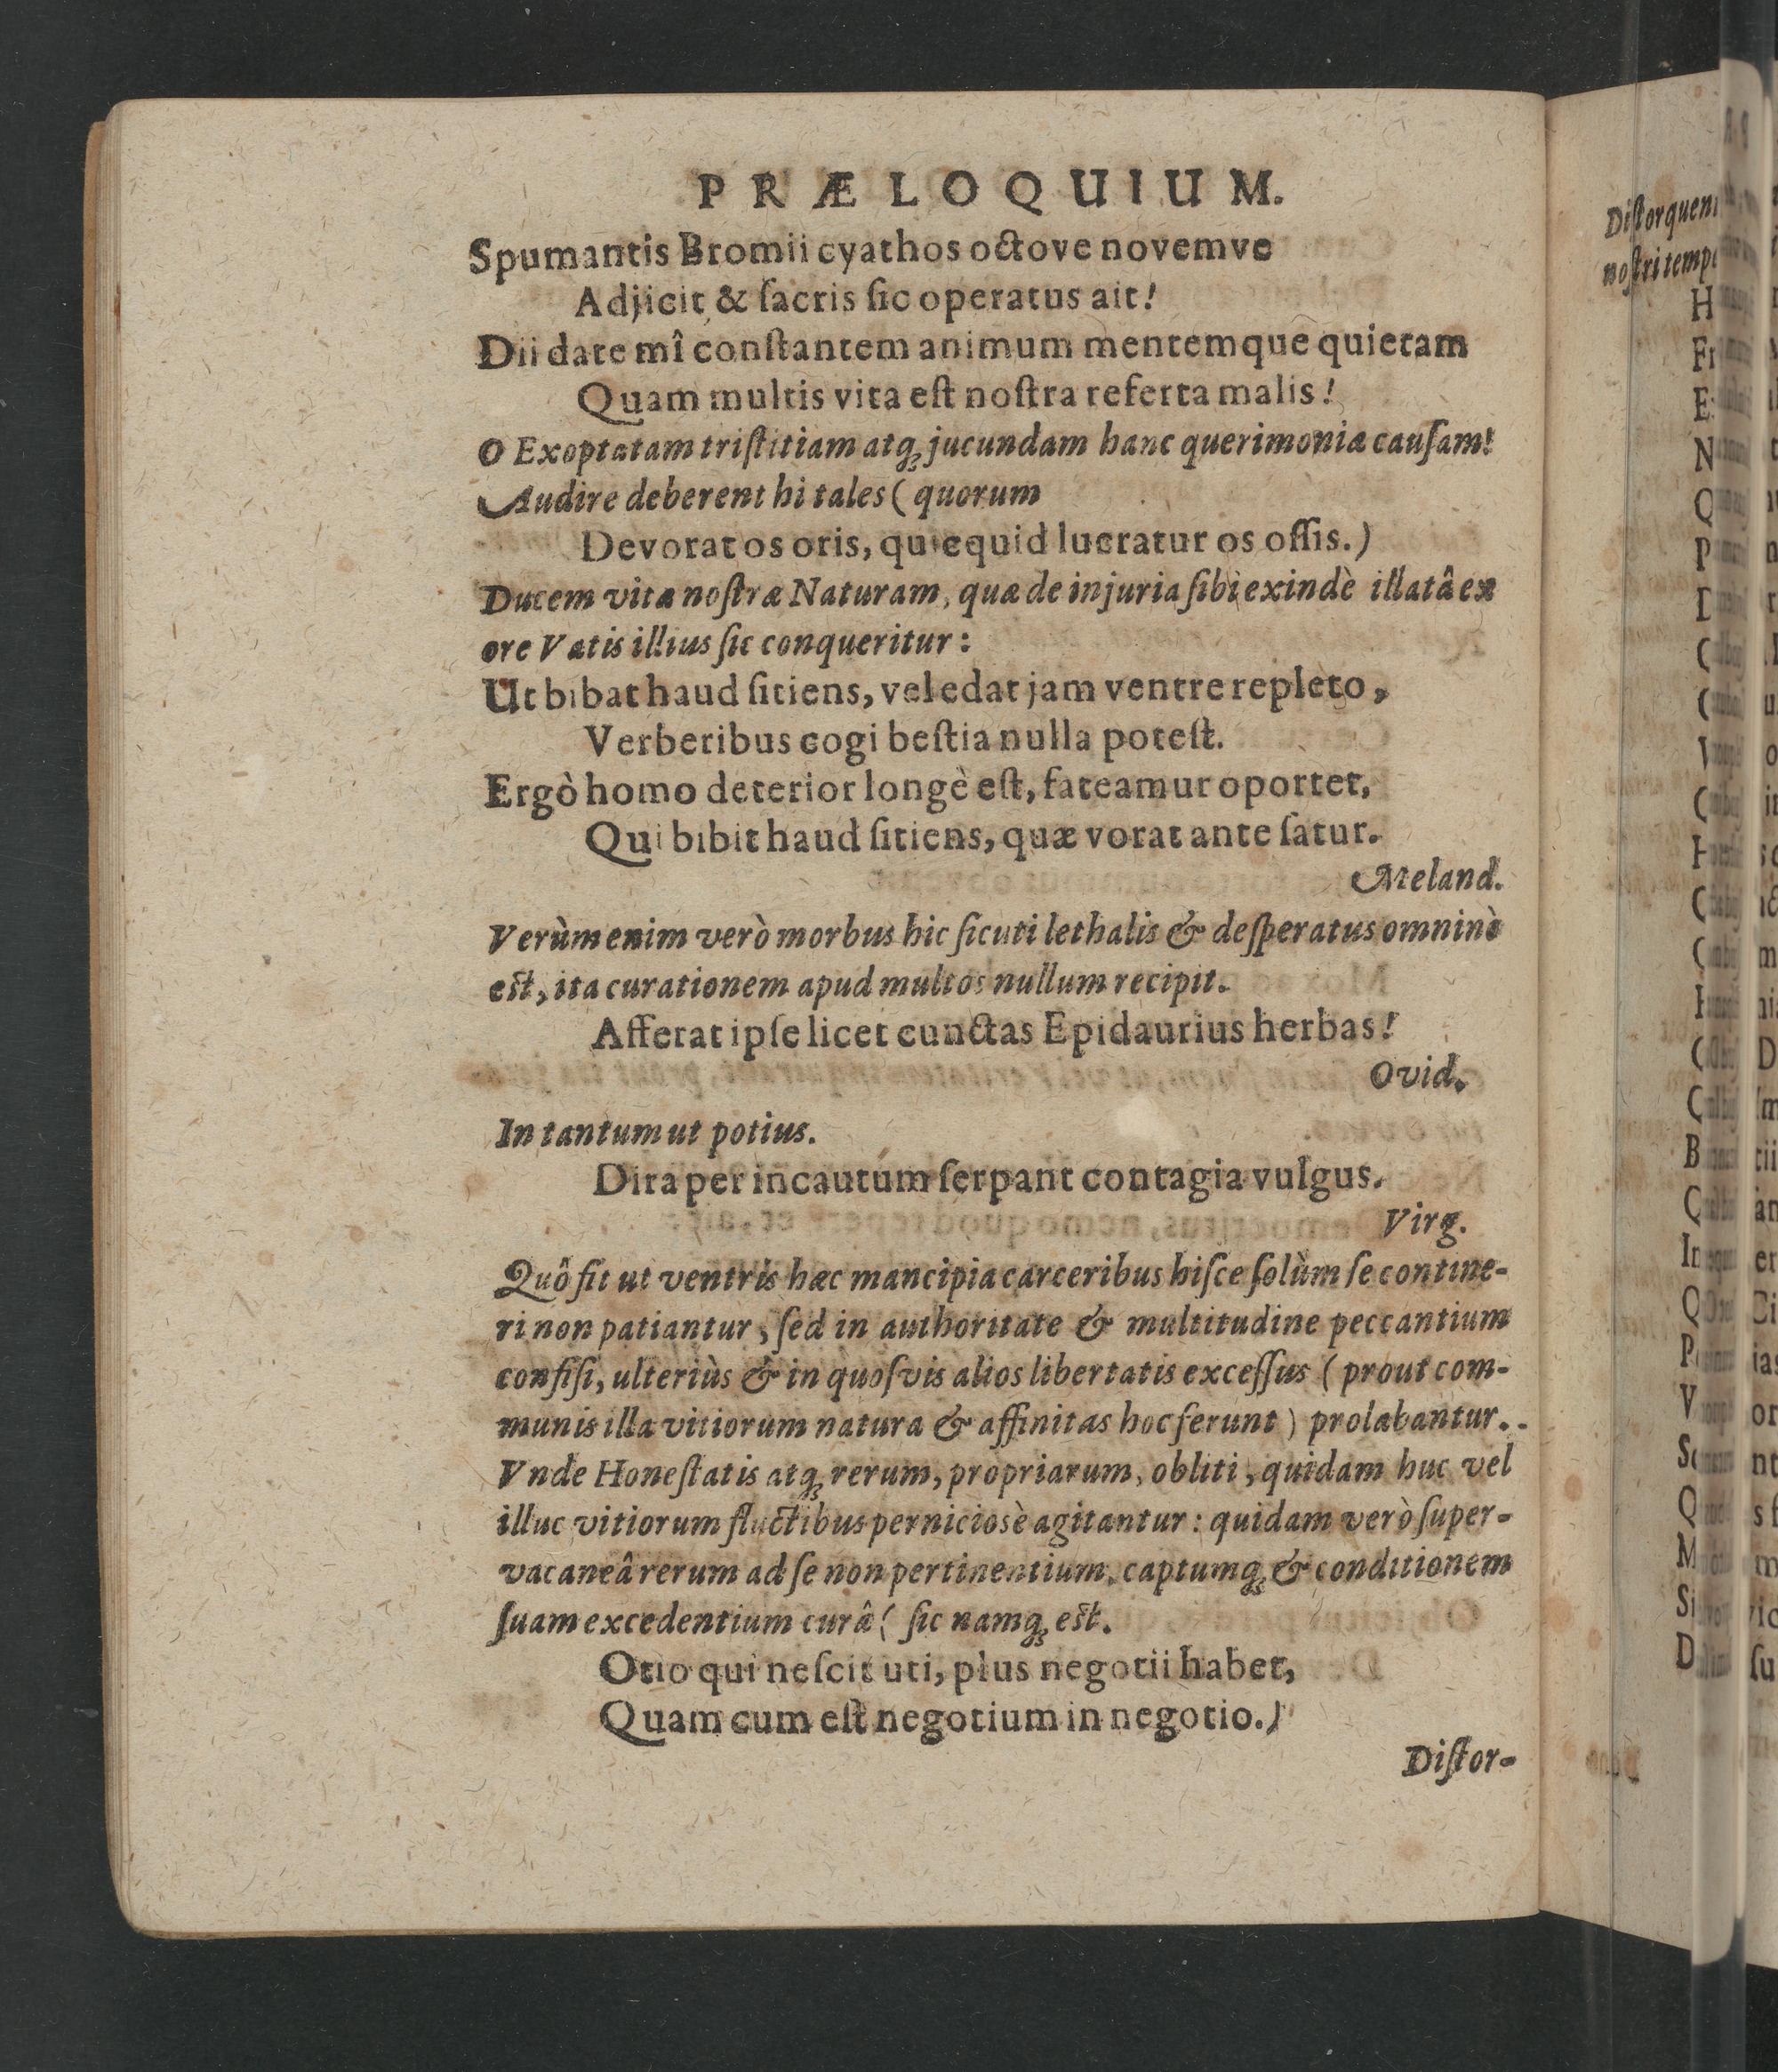 PRÆLOQUIUM.
Spumantis Bromii cyathos octove novemve
Adjicit & ſacris ſic operatus ait!
Dii date mî conſtantem animum mentemque quietam
Quam multis vita eſt noſtra referta malis!
O Exoptatam triſtitiam atq; jucundam hanc querimoniæ cauſam!
Audire deberent hi tales (quorum
Devorat os oris, quicquid lucratur os oſſis.)
Ducem vitæ noſtræ Naturam, quæ de injuria ſibi exindè illatâ ex
ore Vatis illius ſic conqueritur:
Ut bibat haud ſitiens, vel edat jam ventre repleto,
Verberibus cogi beſtia nulla poteſt.
Ergò homo deterior longè eſt, fateamur oportet,
Qui bibit haud ſitiens, quæ vorat ante ſatur.
Meland.
Verùm enim verò morbus hic ſicuti lethalis & deſperatus omninò
eſt, ita curationem apud multos nullum recipit.
Afferat ipſe licet cunctas Epidaurius herbas!
Ovid.
In tantum ut potius.
Dira per incautum ſerpant contagia vulgus.
Virg.
Quô fit ut ventris hæc mancipia carceribus hiſce ſolùm ſe contine-
ri non patiantur, ſed in authoritate & multitudine peccantium
confiſi, ulteriùs & in quoſvis alios libertatis exceſſus (prout com-
munis illa vitiorum natura & affinitas hoc ferunt) prolabantur.
Vnde Honeſtatis atq; rerum, propriarum, obliti, quidam huc vel
illuc vitiorum fluctibus perniciosè agitantur: quidam verò ſuper-
vacaneâ rerum ad ſe non pertinentium, captumq; & conditionem
ſuam excedentium curâ (ſic namq; eſt.
Otio qui neſcit uti, plus negotii habet,
Quam cum eſt negotium in negotio.)
Diſtor-
Diſtorquen
noſtri temp